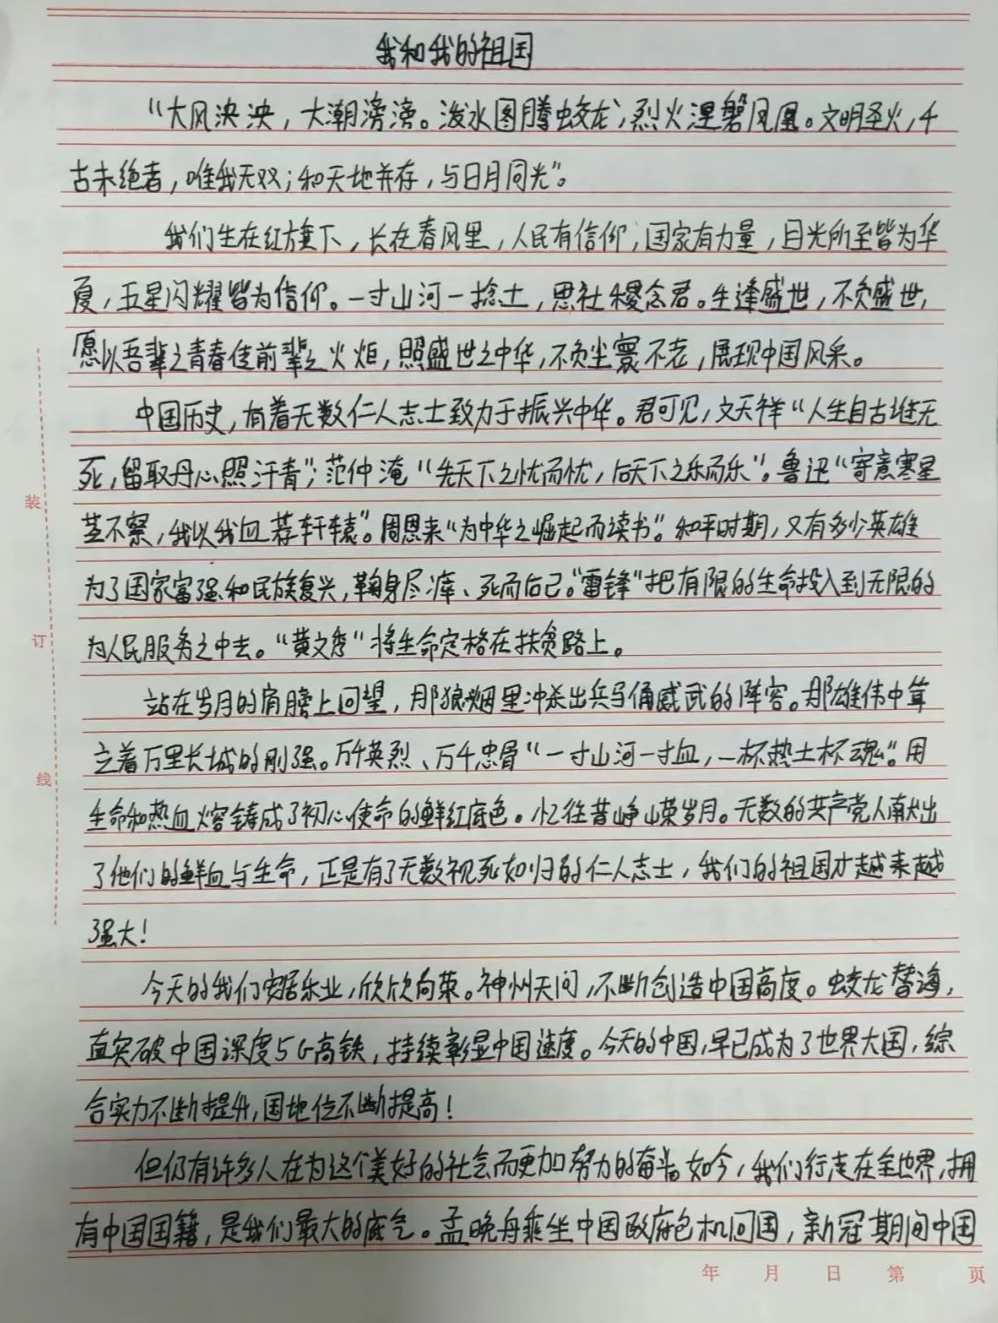 我和我的祖国
“大风泱泱，大潮滂滂。泼水图腾蛟龙，烈火涅磐凤凰。文明圣火，千
古未绝者，唯我无双；和天地并存，与日月同光”。
我们生在红旗下，长在春风里，人民有信仰，国家有力量，目光所至皆为华
夏，五星闪耀皆为信仰。一寸山河一捻土，思社稷念君。生逢盛世，不负盛世，
愿以吾辈之青春传前辈之火炬，照盛世之中华，不负尘寰不老，展现中国风采。
中国历史，有着无数仁人志士致力于振兴中华。君可见，文天祥“人生自古谁无
死，留取丹心照汗青”；范仲淹“先天下之忧而忧，后天下之乐而乐”。鲁迅“寄意寒星
荃不察，我以我血荐轩辕”。周恩来“为中华之崛起而读书”。和平时期，又有多少英雄
为了国家富强和民族复兴，鞠身尽瘁、死而后已。“雷锋”把有限的生命投入到无限的
为人民服务之中去。“黄文秀”将生命定格在扶贫路上。
站在岁月的肩膀上回望，那狼烟里冲杀出兵马俑威武的阵容。那雄伟中耸
立着万里长城的刚强。万千英烈、万千忠骨“一寸山河一寸血，一杯热土杯魂”。用
生命和热血熔铸成了初心使命的鲜红底色。忆往昔峥嵘岁月。无数的共产党人献出
了他们的鲜血与生命，正是有了无数视死如归的仁人志士，我们的祖国才越来越
强大！
今天的我们安居乐业，欣欣向荣。神州天问，不断创造中国高度。蛟龙潜海，
直突破中国深度5G高铁，持续彰显中国速度。今天的中国，早已成为了世界大国，综
合实力不断提升，国地位不断提高！
但仍有许多人在为这个美好的社会而更加努力的奋斗如今，我们行走在全世界，拥
有中国国籍，是我们最大的底气。孟晚舟乘坐中国政府包机回国，新冠期间中国
装
订
线
年 月 日 第 页